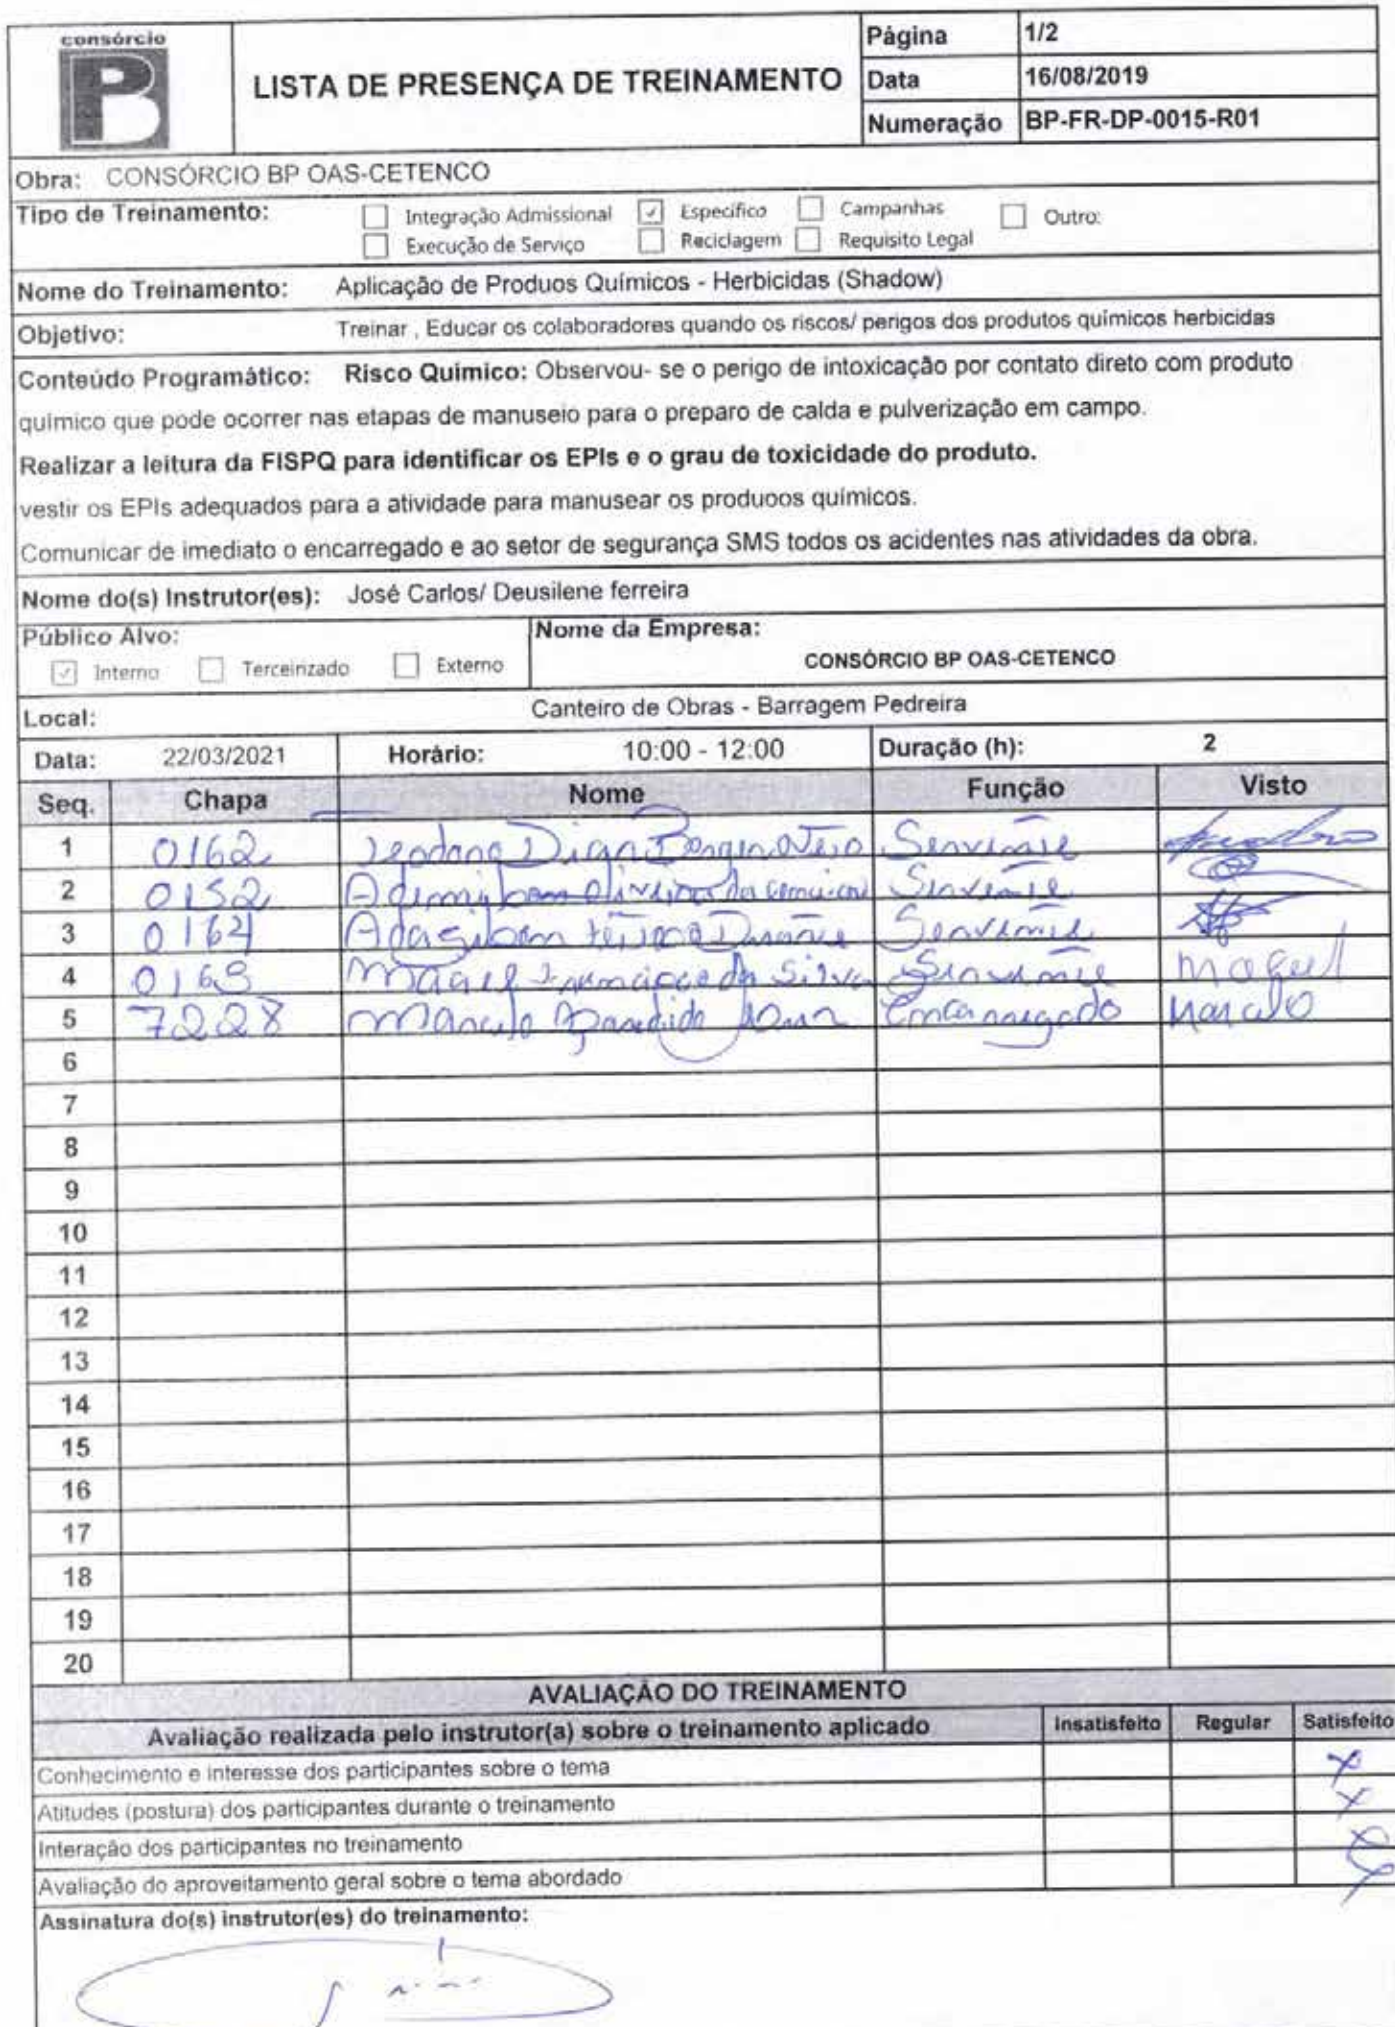 consórcio
LISTA DE PRESENÇA DE TREINAMENTO
Página 1/2
Data 16/08/2019
Numeração BP-FR-DP-0015-R01
Obra: CONSÓRCIO BP OAS-CETENCO
Tipo de Treinamento: Integração Admissional Específico Campanhas Outro:
Execução de Serviço Reciclagem Requisito Legal
Nome do Treinamento: Aplicação de Produos Químicos - Herbicidas (Shadow)
Objetivo: Treinar , Educar os colaboradores quando os riscos/ perigos dos produtos químicos herbicidas
Conteúdo Programático: Risco Quimico: Observou- se o perigo de intoxicação por contato direto com produto
químico que pode ocorrer nas etapas de manuseio para o preparo de calda e pulverização em campo.
Realizar a leitura da FISPQ para identificar os EPIs e o grau de toxicidade do produto.
vestir os EPIs adequados para a atividade para manusear os produoos químicos.
Comunicar de imediato o encarregado e ao setor de segurança SMS todos os acidentes nas atividades da obra.
Nome do(s) Instrutor(es): José Carlos/ Deusilene ferreira
Público Alvo: Nome da Empresa:
Interno Terceirizado Externo CONSÓRCIO BP OAS-CETENCO
Local: Canteiro de Obras - Barragem Pedreira
Data: 22/03/2021 Horário: 10:00 - 12:00 Duração (h): 2
Seq. Chapa Nome Função Visto
1 0162 Servente
2 0152 Servente
3 0164 Servente
4 0163 da Silva Servente
5 7228 Marcelo Encarregado Marcelo
6
7
8
9
10
11
12
13
14
15
16
17
18
19
20
AVALIAÇÃO DO TREINAMENTO
Avaliação realizada pelo instrutor(a) sobre o treinamento aplicado Insatisfeito Regular Satisfeito
Conhecimento e interesse dos participantes sobre o tema X
Atitudes (postura) dos participantes durante o treinamento X
Interação dos participantes no treinamento X
Avaliação do aproveitamento geral sobre o tema abordado X
Assinatura do(s) instrutor(es) do treinamento: